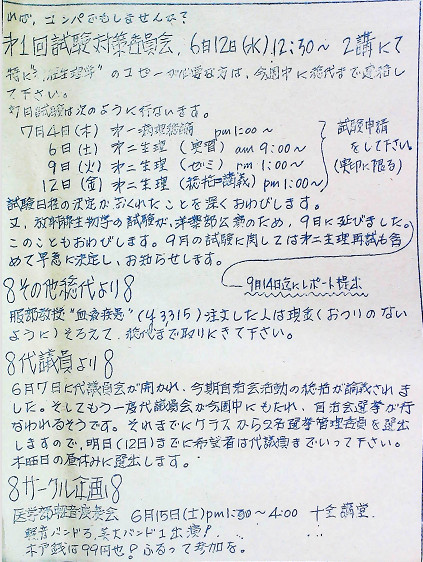 めば、コンパでもしませんか?
オ1回試験対策委員会、6月12日(水)12:30~ 2講にて
特に"圧生理学"のコピーが必要な方は、今週中に総代まで連絡し
て下さい。
7月試験は次のように行ないます。
7月4日(木) オ一病理総論 pm1:00~
6日(土) オ二生理(実習) am9:00~
9日(火) オ二生理(ゼミ) pm1:00~
12日(金) オ二生理(総括=講義) pm1:00~
試験申請
をして下さい
(実印に限る)
試験日程の決定がおくれたことを深くおわびします。
又、放射線生物学の試験が、洋のため、9月に延びました。
このこともおわびします。9月の試験に関してはオ二生理再試も含
めて早急に決定し、お知らせします。
9月14日迄にレポート提出
8その他総代より8
服部教授"血液疾患"(¥3315)注文した人は現金(おつりのない
ように)そろえて、総代まで取りにきて下さい。
8代議員より8
6月7日に代議員会が開かれ、今期自治会活動の総括が論義されま
した。そしてもう一度代議員会が今週中にもたれ、自治会選挙が行
なわれるそうです。それまでにクラスから2名選挙管理委員を選出
しますので、明日(12日)までに希望者は代議員までいって下さい。
木曜日の昼休みに選出します。
8サークル企画8
医学部軽音演奏会 6月15日(土)pm1:30~4:00 十全講堂
軽音バンド3、美大バンド1出演!
木戸銭は99円也!ふるって参加を。